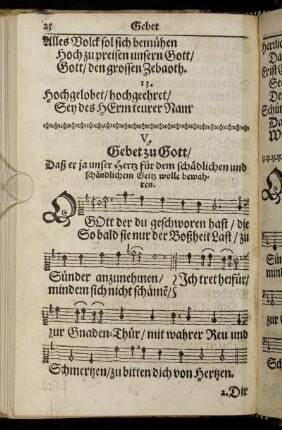 25 Gebet
Alles Volck sol sich bemühen
Hoch zu preisen unsern Gott/
Gott/ den grossen Zebaoth.
13.
Hochgelobet/ hochgeehret/
Sey des HErrn teurer Nam'
V.
Gebet zu Gott/
Daß er ja unser Hertz für dem schädlichen und
schändlichem Geitz wolle bewah-
ren.
O GOtt der du geschworen hast/ die
So bald sie nur der Boßheit Last/ zu
Sünder anzunehmen/ Ich tret herfür/
mindern sich nicht schämē/
zur Gnaden-Thür/ mit wahrer Reu und
Schmertzen/ zu bitten dich von Hertzen.
2. Dir